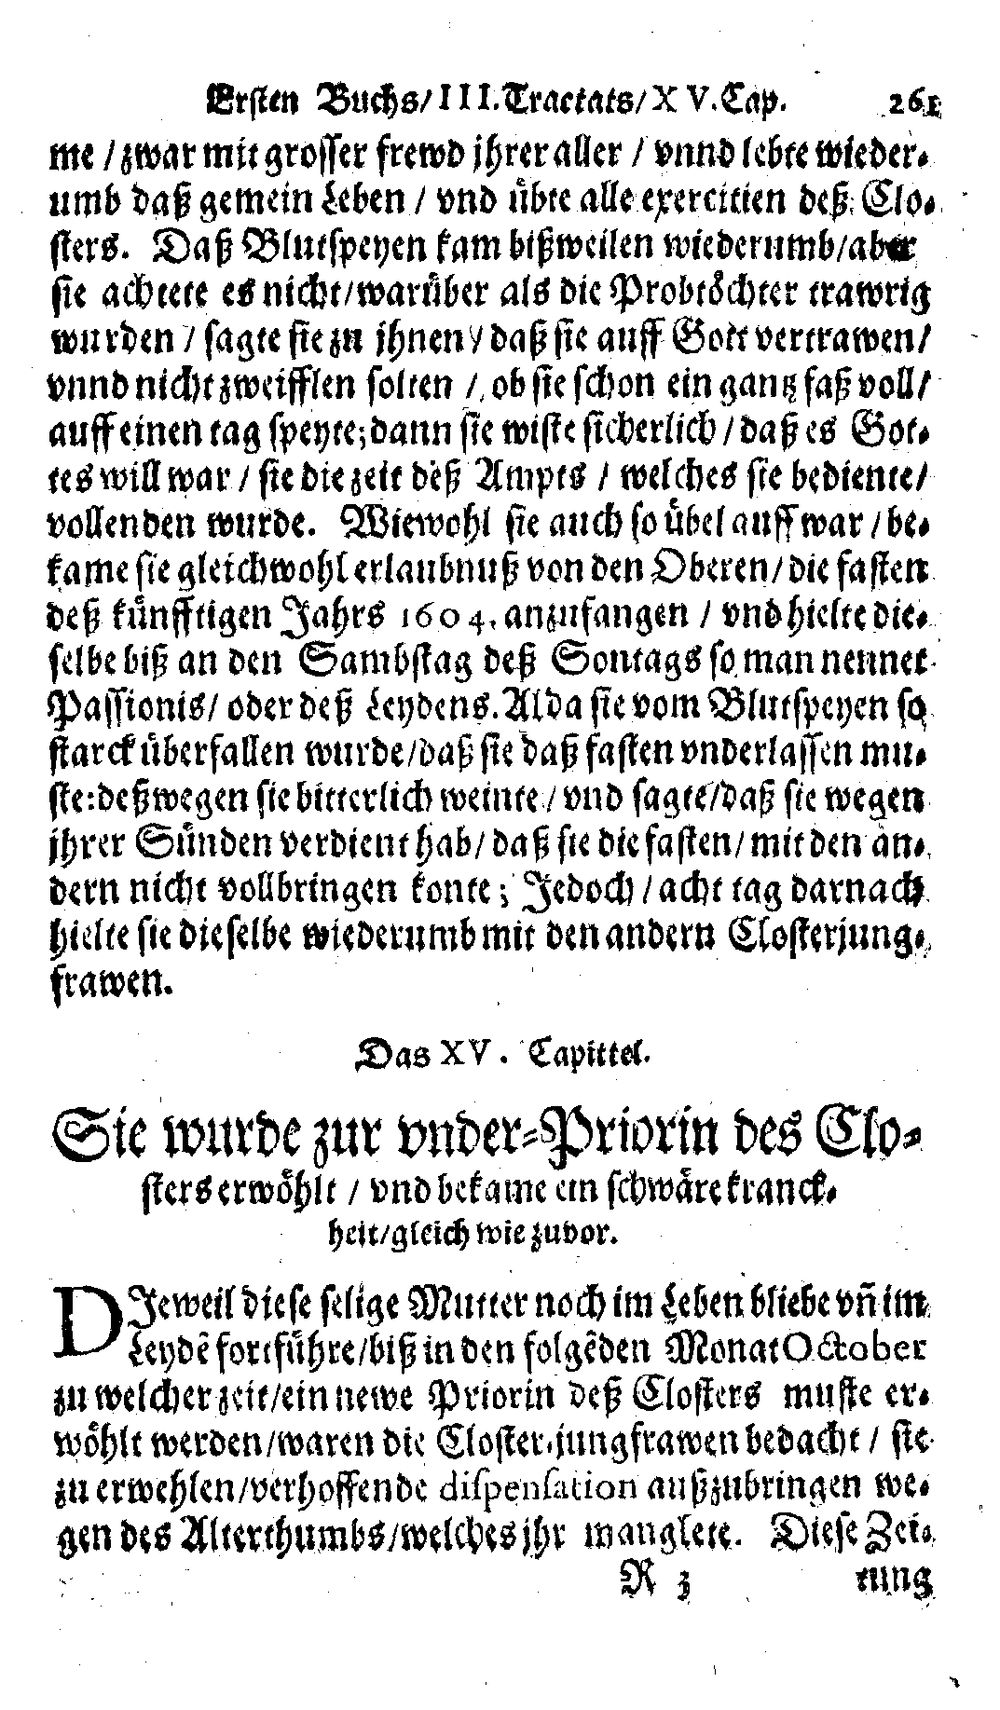 Ersten Buchs/III.Tractats/XV.Cap. 261
me /zwar mit grosser frewd jhrer aller / vnnd lebte wieder-
umb daß gemein Leben / vnd übte alle exercitien deß Clo-
sters. Daß Blutspeyen kam bißweilen wiederumb/aber
sie achtete es nicht/warüber als die Probtöchter trawrig
wurden / sagte sie zu jhnen / daß sie auff Gott vertrawen/
vnnd nicht zweifflen solten / ob sie schon ein gantz faß voll/
auff einen tag speyte; dann sie wiste sicherlich / daß es Got-
tes will war / sie die zeit deß Ampts / welches sie bediente/
vollenden wurde. Wiewohl sie auch so übel auff war / be-
kame sie gleichwohl erlaubnuß von den Oberen/die fasten
deß künfftigen Jahrs 1604. anzufangen / vnd hielte die-
selbe biß an den Sambstag deß Sontags so man nennet
Passionis/ oder deß Leydens. Alda sie vom Blutspeyen so
starck überfallen wurde/daß sie daß fasten vnderlassen mu-
ste: deßwegen sie bitterlich weinte / vnd sagte/daß sie wegen
jhrer Sünden verdient hab/ daß sie die fasten/ mit den an-
dern nicht vollbringen konte; Jedoch / acht tag darnach
hielte sie dieselbe wiederumb mit den andern Closterjung-
frawen.
Das XV. Capittel.
Sie wurde zur vnder-Priorin des Clo-
sters erwöhlt / vnd bekame ein schwäre kranck-
heit/gleich wie zuvor.
DJeweil diese selige Mutter noch im Leben bliebe vñ im
Leydē fortführe/biß in den folgēden Monat October
zu welcher zeit/ein newe Priorin deß Closters muste er-
wöhlt werden/waren die Closter-jungfrawen bedacht / sie
zu erwehlen/verhoffende dispensation außzubringen we-
gen des Alterthumbs/welches jhr manglete. Diese Zei-
R 3 tung